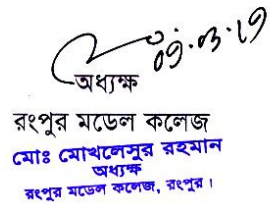 ০৭.০৩.১৭
অধ্যক্ষ
রংপুর মডেল কলেজ
মোঃ মোখলেসুর রহমান
অধ্যক্ষ
রংপুর মডেল কলেজ, রংপুর।